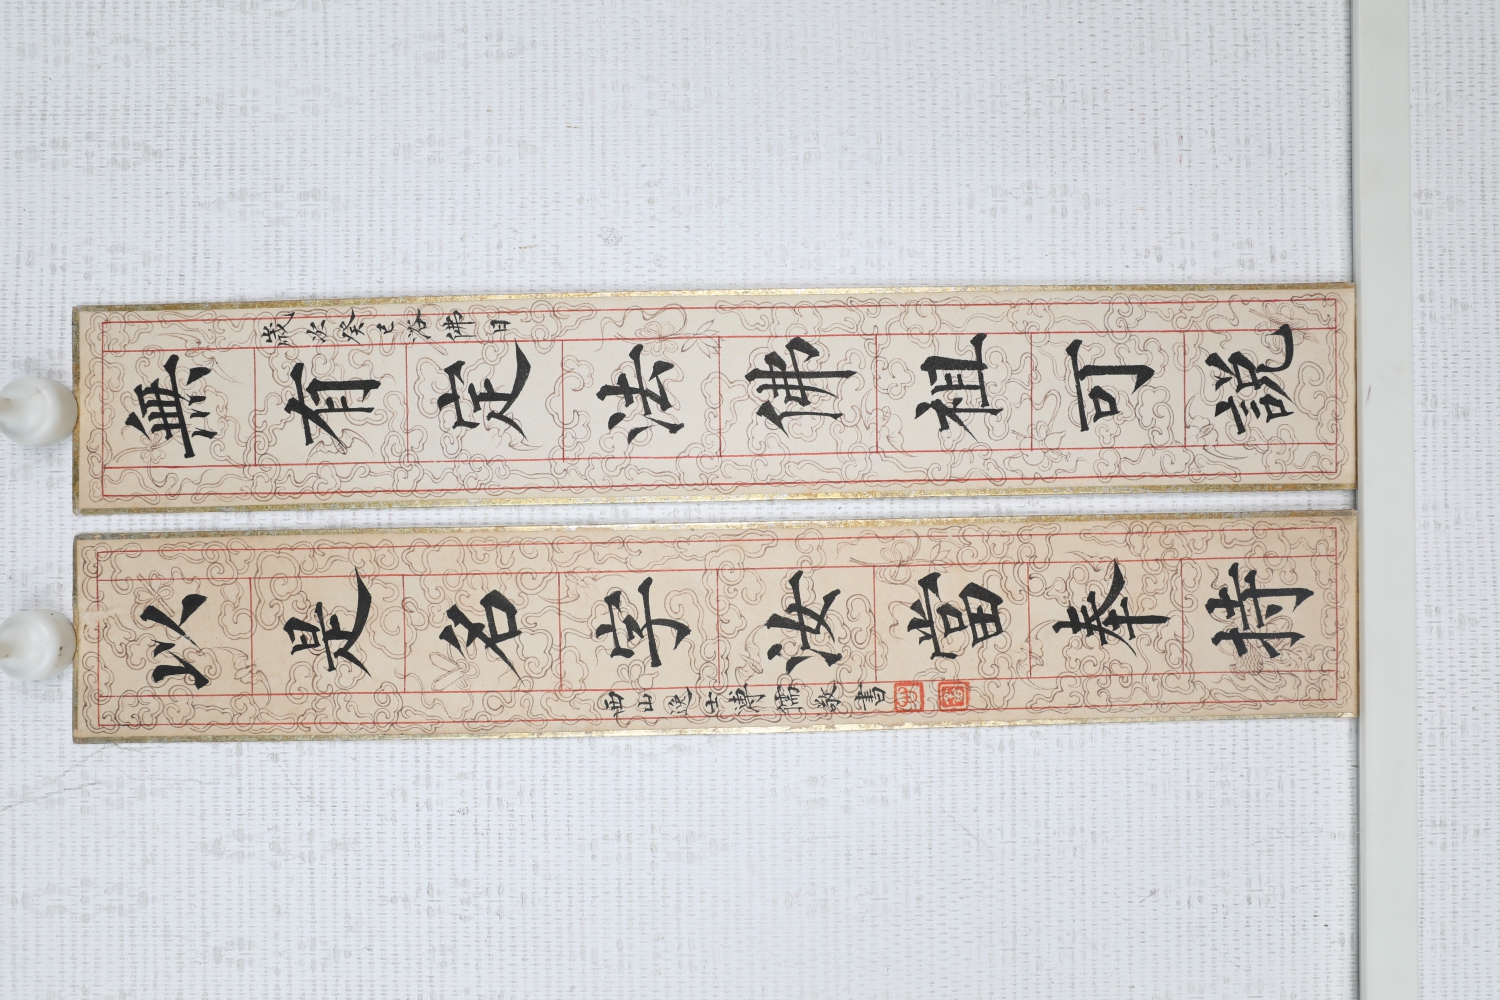 無有定法佛祖可說
歲次癸巳浴佛日
以是名字汝當奉持
西山逸士溥儒敬書